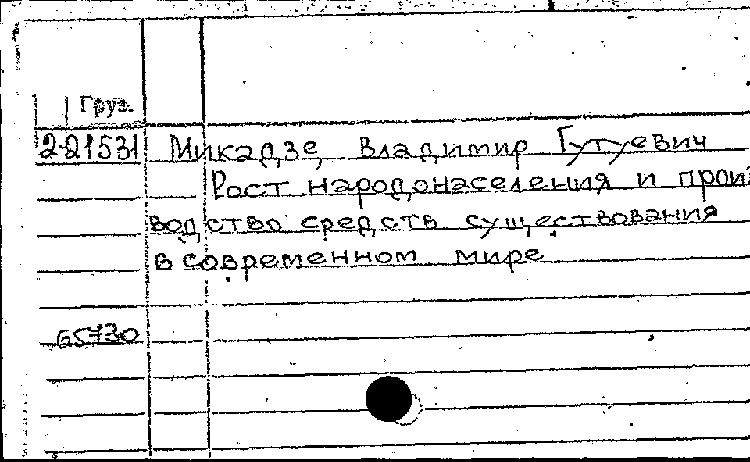 Груз.
2-21531 Микадзе, Владимир Гутуевич
Рост народонаселения и произ
водство средств существования
в современном мире
65730